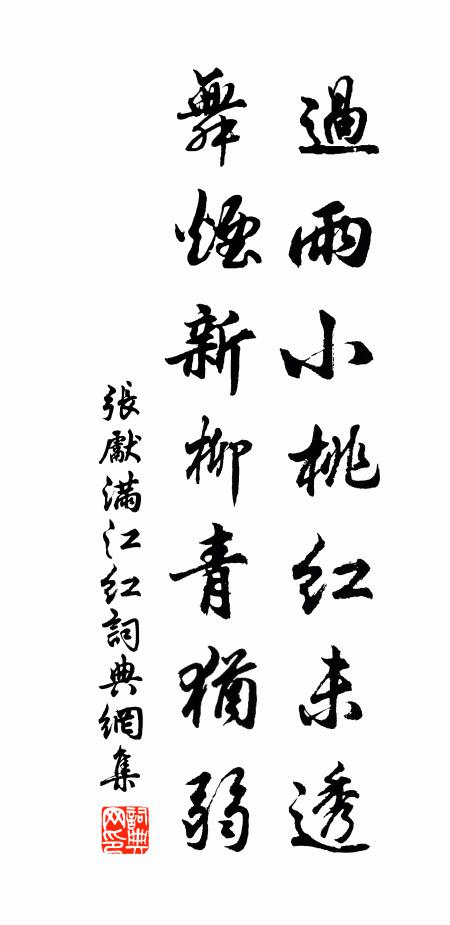 過雨小桃紅未透
舞煙新柳青猶弱
張獻滿江紅詞典網集
詞典网印